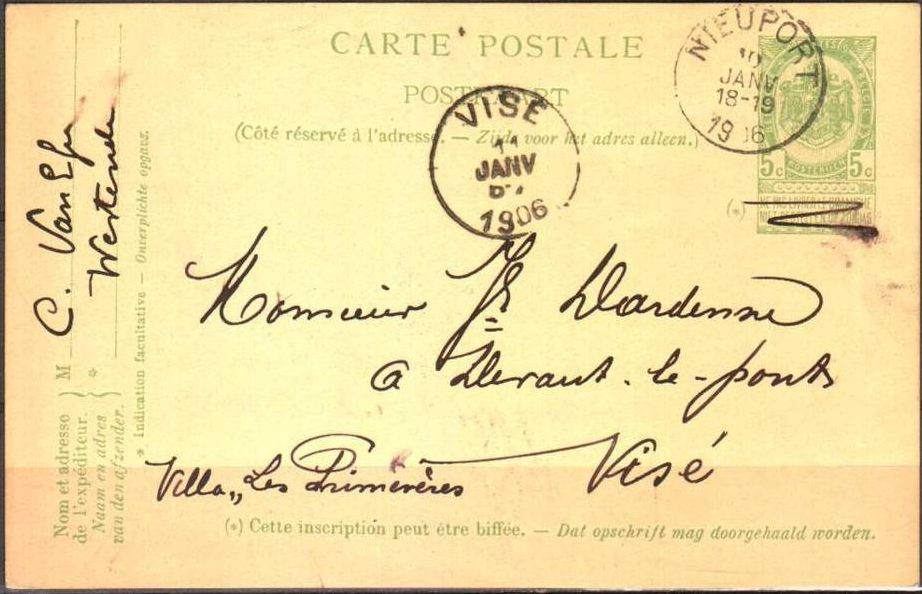 CARTE POSTALE
POSTKAART
(Côté réservé à l'adresse. — Zijde voor het adres alleen.)
NIEUPORT
10
JANV
18-19
1906
VISÉ
11
JANV
1906
5c 5c
(*)
Monsieur Jh Dardenne
a Devant-le-ponts
Visé
Villa „Les Primevères
(*) Cette inscription peut être biffée. — Dat opschrift mag doorgehaald worden.
Nom et adresse
de l'expéditeur.
Naam en adres
van den afzender.
M C. Van
* Westende
* Indication facultative — Onverplichte opgave.